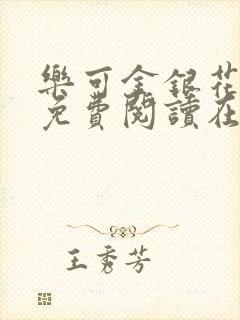 樂可金銀花
免費閱讀在
王秀芳